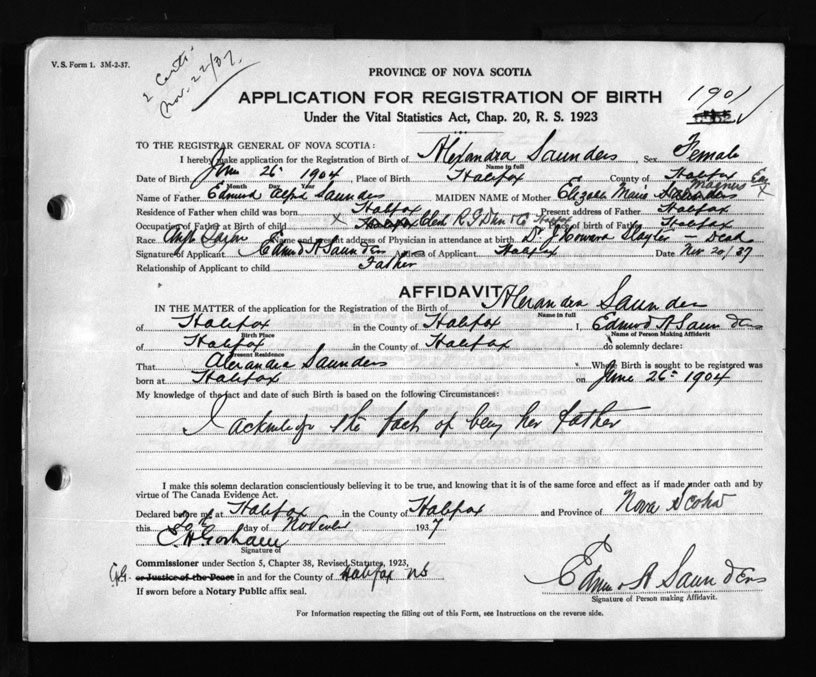 V. S. Form 1. 3M-2-37.
2 Certs.
Nov. 22/37.
PROVINCE OF NOVA SCOTIA
APPLICATION FOR REGISTRATION OF BIRTH
1901
Under the Vital Statistics Act, Chap. 20, R. S. 1923
TO THE REGISTRAR GENERAL OF NOVA SCOTIA:
I hereby make application for the Registration of Birth of Alexandra Saunders, Sex Female
Name in full
Date of Birth, June 26 1904, Place of Birth Halifax County of Halifax
Month Day Year
Name of Father Edmund Saunders MAIDEN NAME of Mother Marie Magnus
Residence of Father when child was born Halifax Present address of Father Halifax
Occupation of Father at Birth of child X Clerk Place of birth of Father Halifax
Race Name and present address of Physician in attendance at birth. Dr. J Howard Slayter - Dead
Signature of Applicant Edmund A Saunders Address of Applicant Halifax Date Nov 20/37
Relationship of Applicant to child Father
AFFIDAVIT
IN THE MATTER of the application for the Registration of the Birth of Alexandra Saunders
Name in full
of Halifax in the County of Halifax I, Edmund A Saunders
Birth Place Name of Person Making Affidavit
of Halifax in the County of Halifax do solemnly declare:
Present Residence
That Alexandra Saunders Whose Birth is sought to be registered was
born at Halifax on June 26 1904
My knowledge of the fact and date of such Birth is based on the following Circumstances:
I acknowledge the fact of being her father
I make this solemn declaration conscientiously believing it to be true, and knowing that it is of the same force and effect as if made under oath and by
virtue of The Canada Evidence Act.
Declared before me at Halifax in the County of Halifax and Province of Nova Scotia
this 20th day of November 1937
E H Gorham
Signature of
Commissioner under Section 5, Chapter 38, Revised Statutes, 1923,
or Justice of the Peace in and for the County of Halifax NS
If sworn before a Notary Public affix seal.
Edmund A Saunders
Signature of Person making Affidavit.
For Information respecting the filling out of this Form, see Instructions on the reverse side.